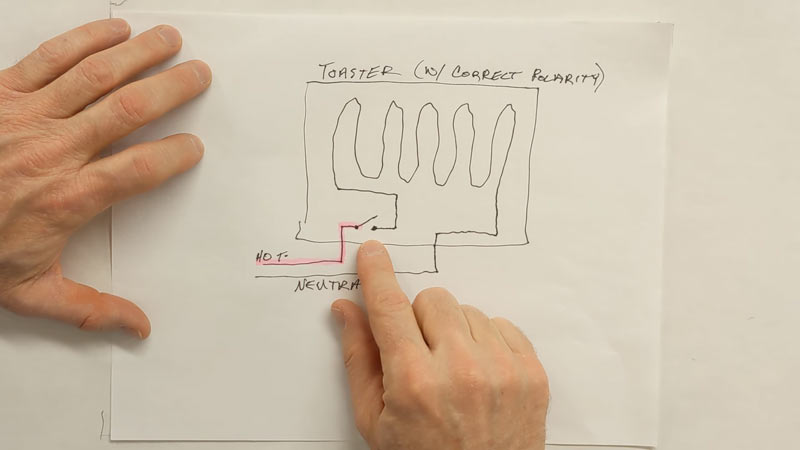 TOASTER (W/ CORRECT POLARITY)
HOT
NEUTRA